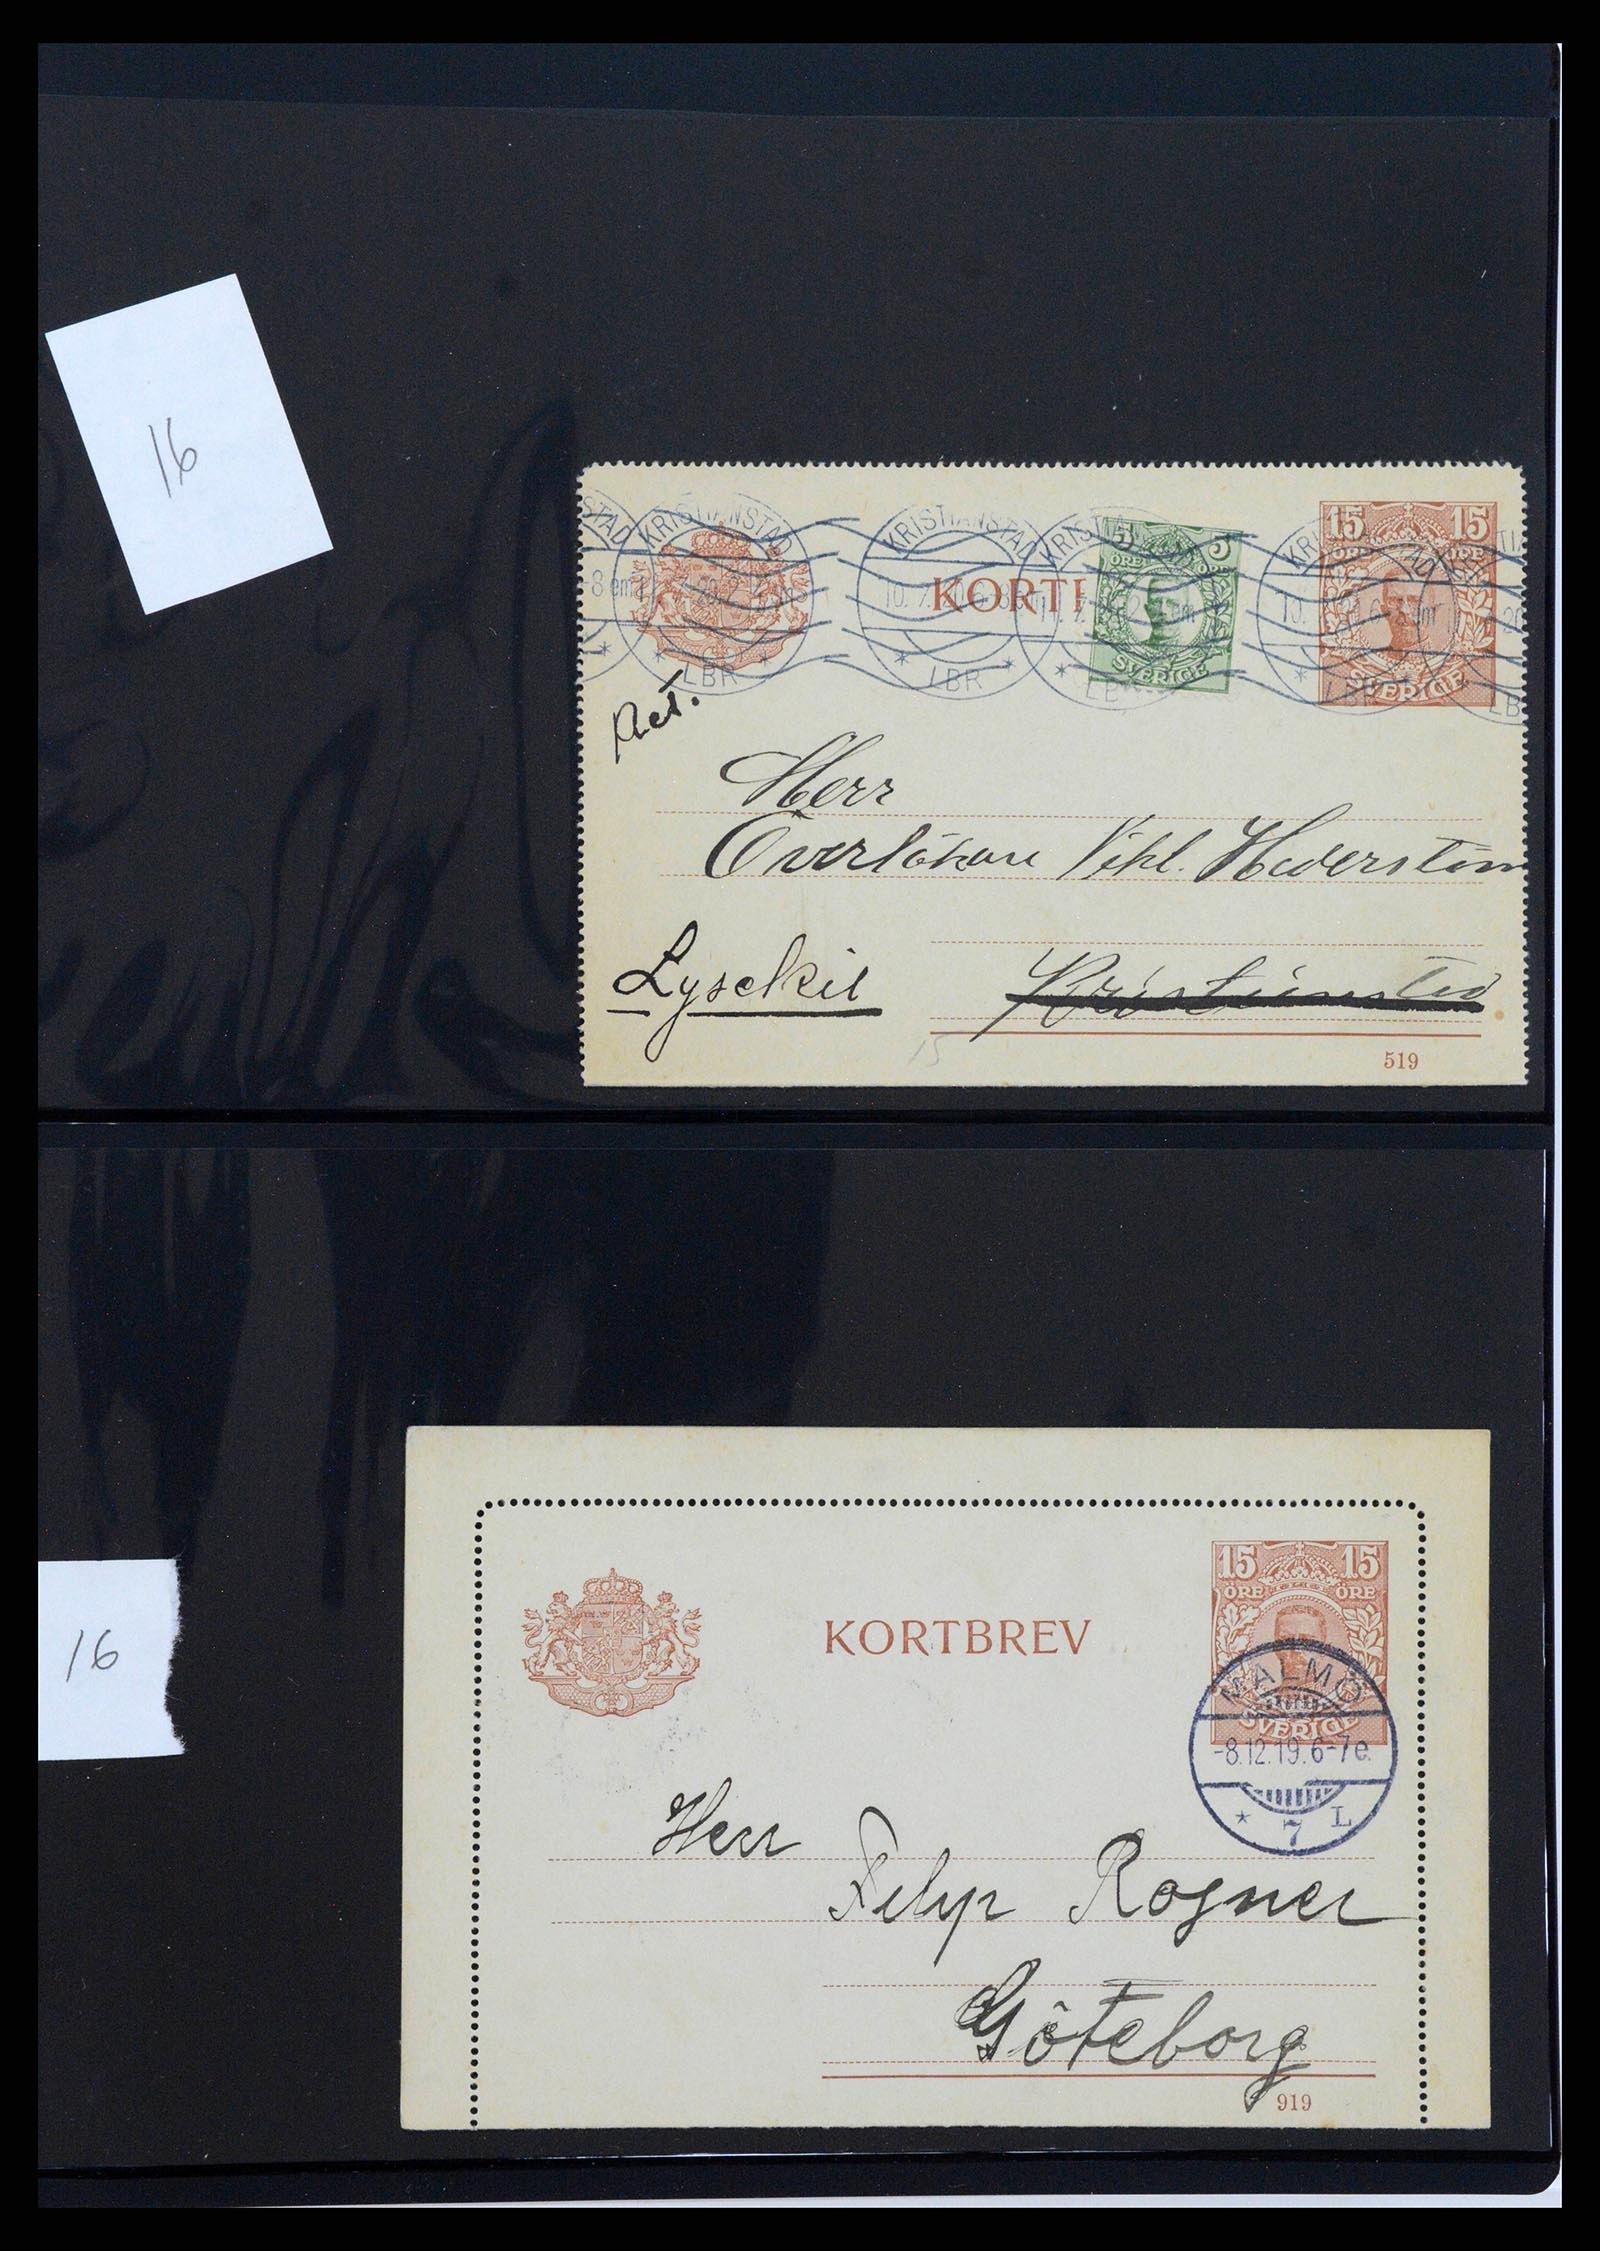 16
KRISTIANSTAD
LBR
KORTB
5 5
ÖRE ÖRE
SVERIGE
15 15
ÖRE ÖRE
SVERIGE
Ret.
Herr
Lysekil
Kristianstad
15
519
16
KORTBREV
15 15
ÖRE ÖRE
SVERIGE
MALMÖ
-8.12.19.6-7e.
* 7 L
Herr
Filip Rogner
Göteborg
919